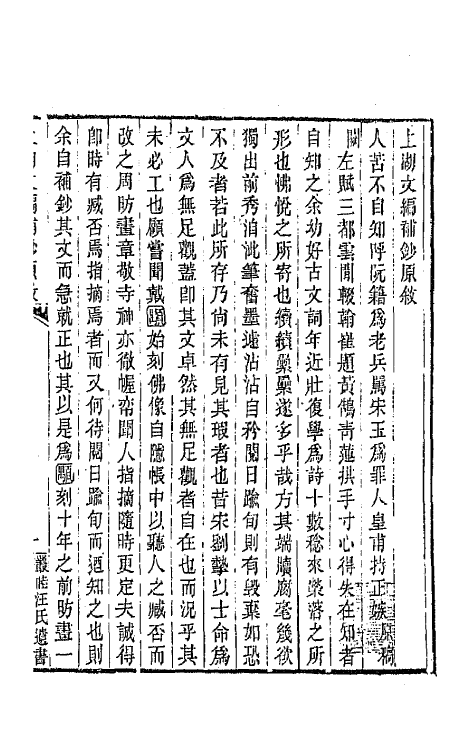 上湖文編補鈔原敘
人苦不自知呼阮籍為老兵厲宋玉為罪人皇甫持正嫉
關左賦三都雲間輟翰崔題黃鶴靑蓮拱手寸心得失在知者
自知之余幼好古文詞年近壯復學為詩十數稔來縈落之所
形也怫悅之所寄也纘纘纍纍遂多乎哉方其端牘腐毫幾欲
獨出前秀洎泚筆奮墨遠沾沾自矜閱日踰旬則有毀棄如恐
不及者若此所存乃尙未有見其瑕者也昔宋劉摯以士命為
文人為無足觀蓋卽其文卓然其無足觀者自在也而況乎其
未必工也願嘗聞戴顒始刻佛像自隱帳中以聽人之臧否而
改之周昉畫章敬寺神亦徹幄帟聞人指摘隨時更定夫誠得
卽時有臧否焉指摘焉者而又何待閱日踰旬而迺知之也則
余自補鈔其文而急就正也其以是為顒刻十年之前昉畫一
一
叢睦汪氏遺書